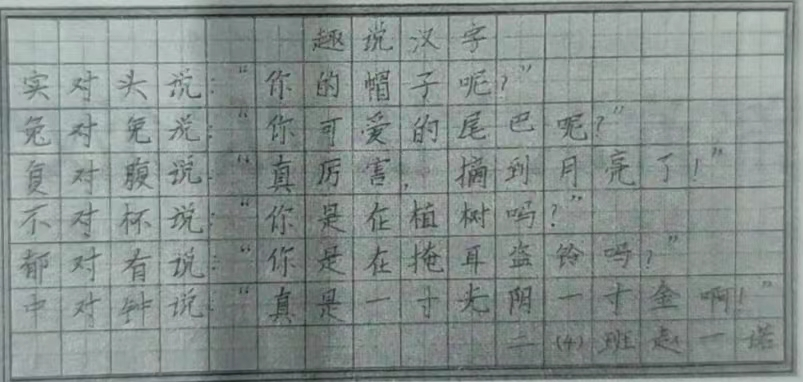 趣说汉字
实对头说:“你的帽子呢?”
兔对免说:“你可爱的尾巴呢?”
复对腹说:“真厉害,摘到月亮了!”
不对杯说:“你是在植树吗?”
郁对有说:“你是在掩耳盗铃吗?”
中对钟说:“真是一寸光阴一寸金啊!”
二(4)班赵一诺